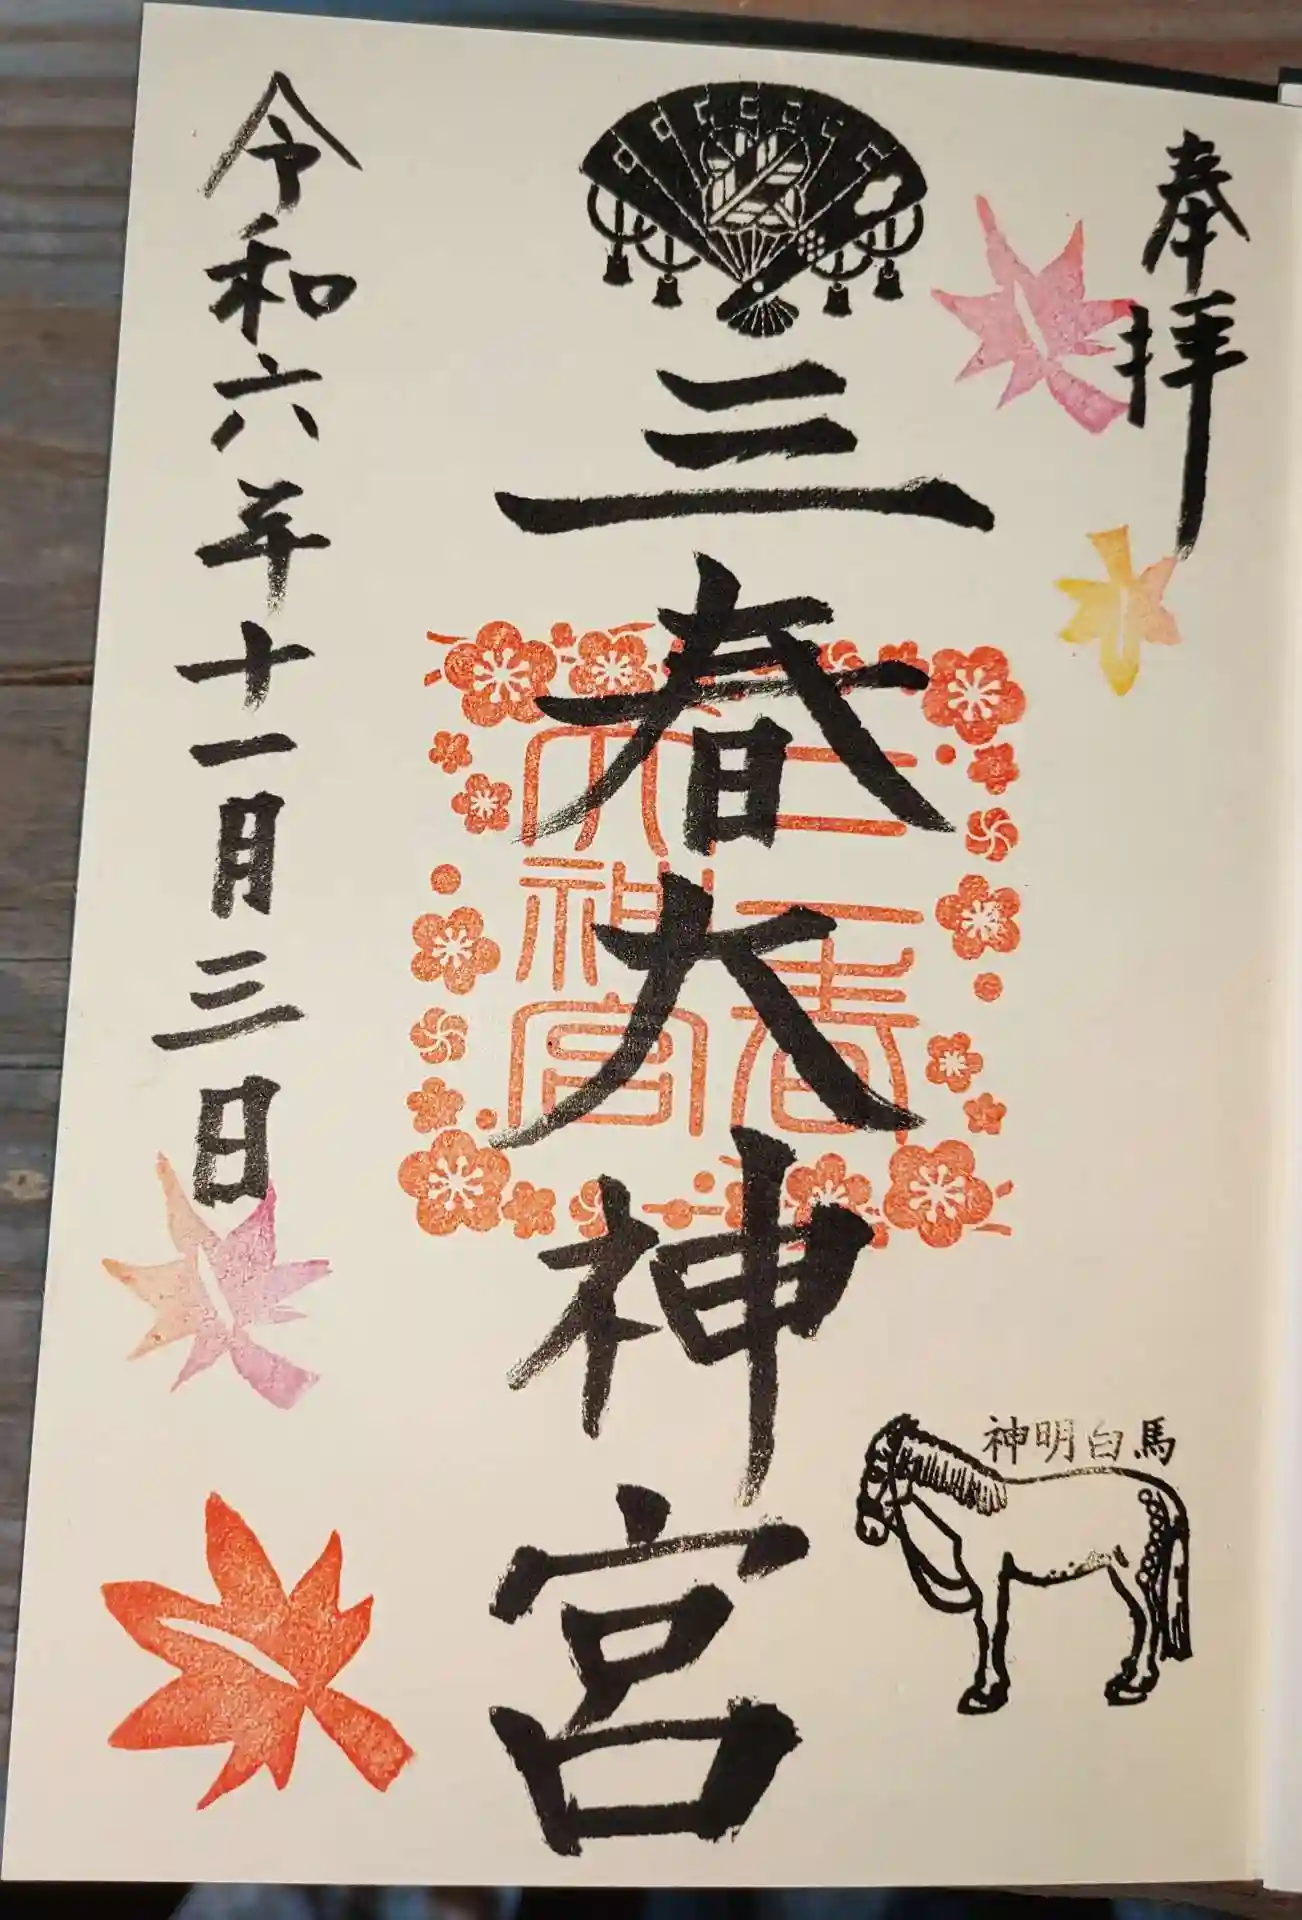 奉拝
三春大神宮
三春
大神宮
神明白馬
令和六年十一月三日